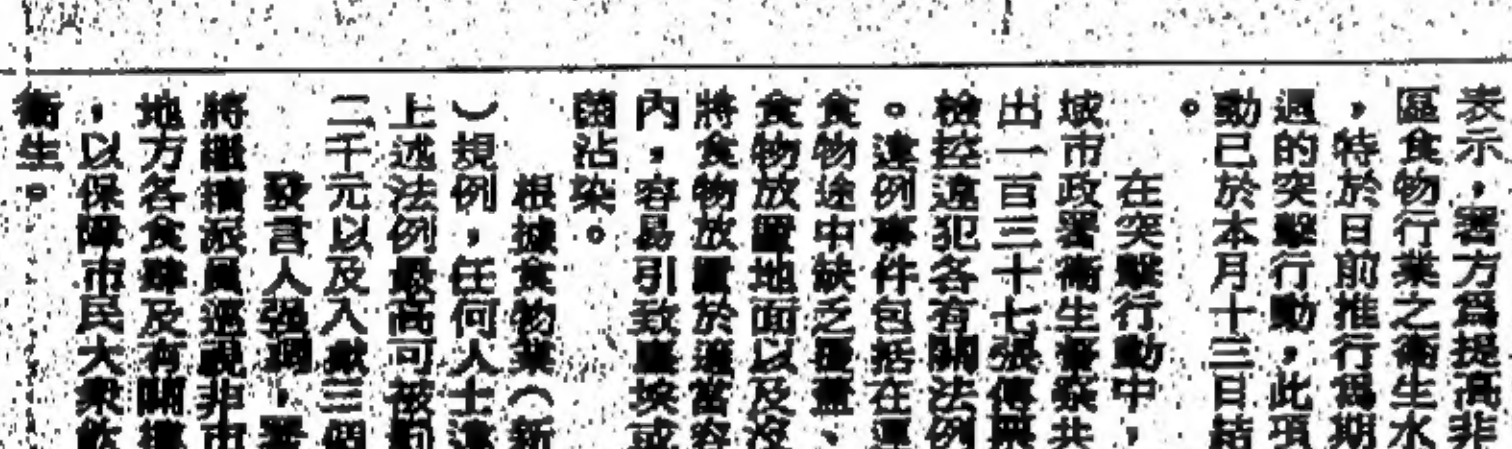 表示，署方爲提高非
區食物行業之衞生水
，特於日前推行爲期
週的突擊行動，此項
動已於本月十三日結
。
在突擊行動中，
域市政署衞生督察共
出一百三十七張傳票
檢控違犯各有關法例
。違例事件包括在運
食物途中缺乏覆蓋、
食物放置地面以及沒
將食物放置於適當容
內，容易引致塵埃或
菌沾染。
根據食物業（新
）規例，任何人士違
上述法例最高可被判
二千元以及入獄三個
發言人強調，署
將繼續派員巡視非市
地方各食肆及有關攤
，以保障市民大衆飲
衞生。